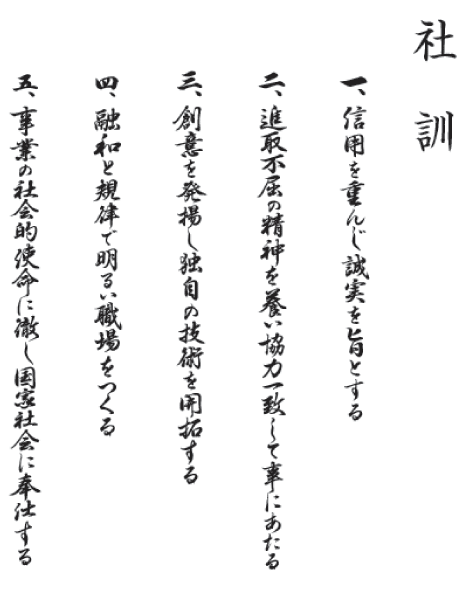 社訓
一、信用を重んじ誠実を旨とする
二、進取不屈の精神を養い協力一致して事にあたる
三、創意を発揚し独自の技術を開拓する
四、融和と規律で明るい職場をつくる
五、事業の社会的使命に徹し国家社会に奉仕する